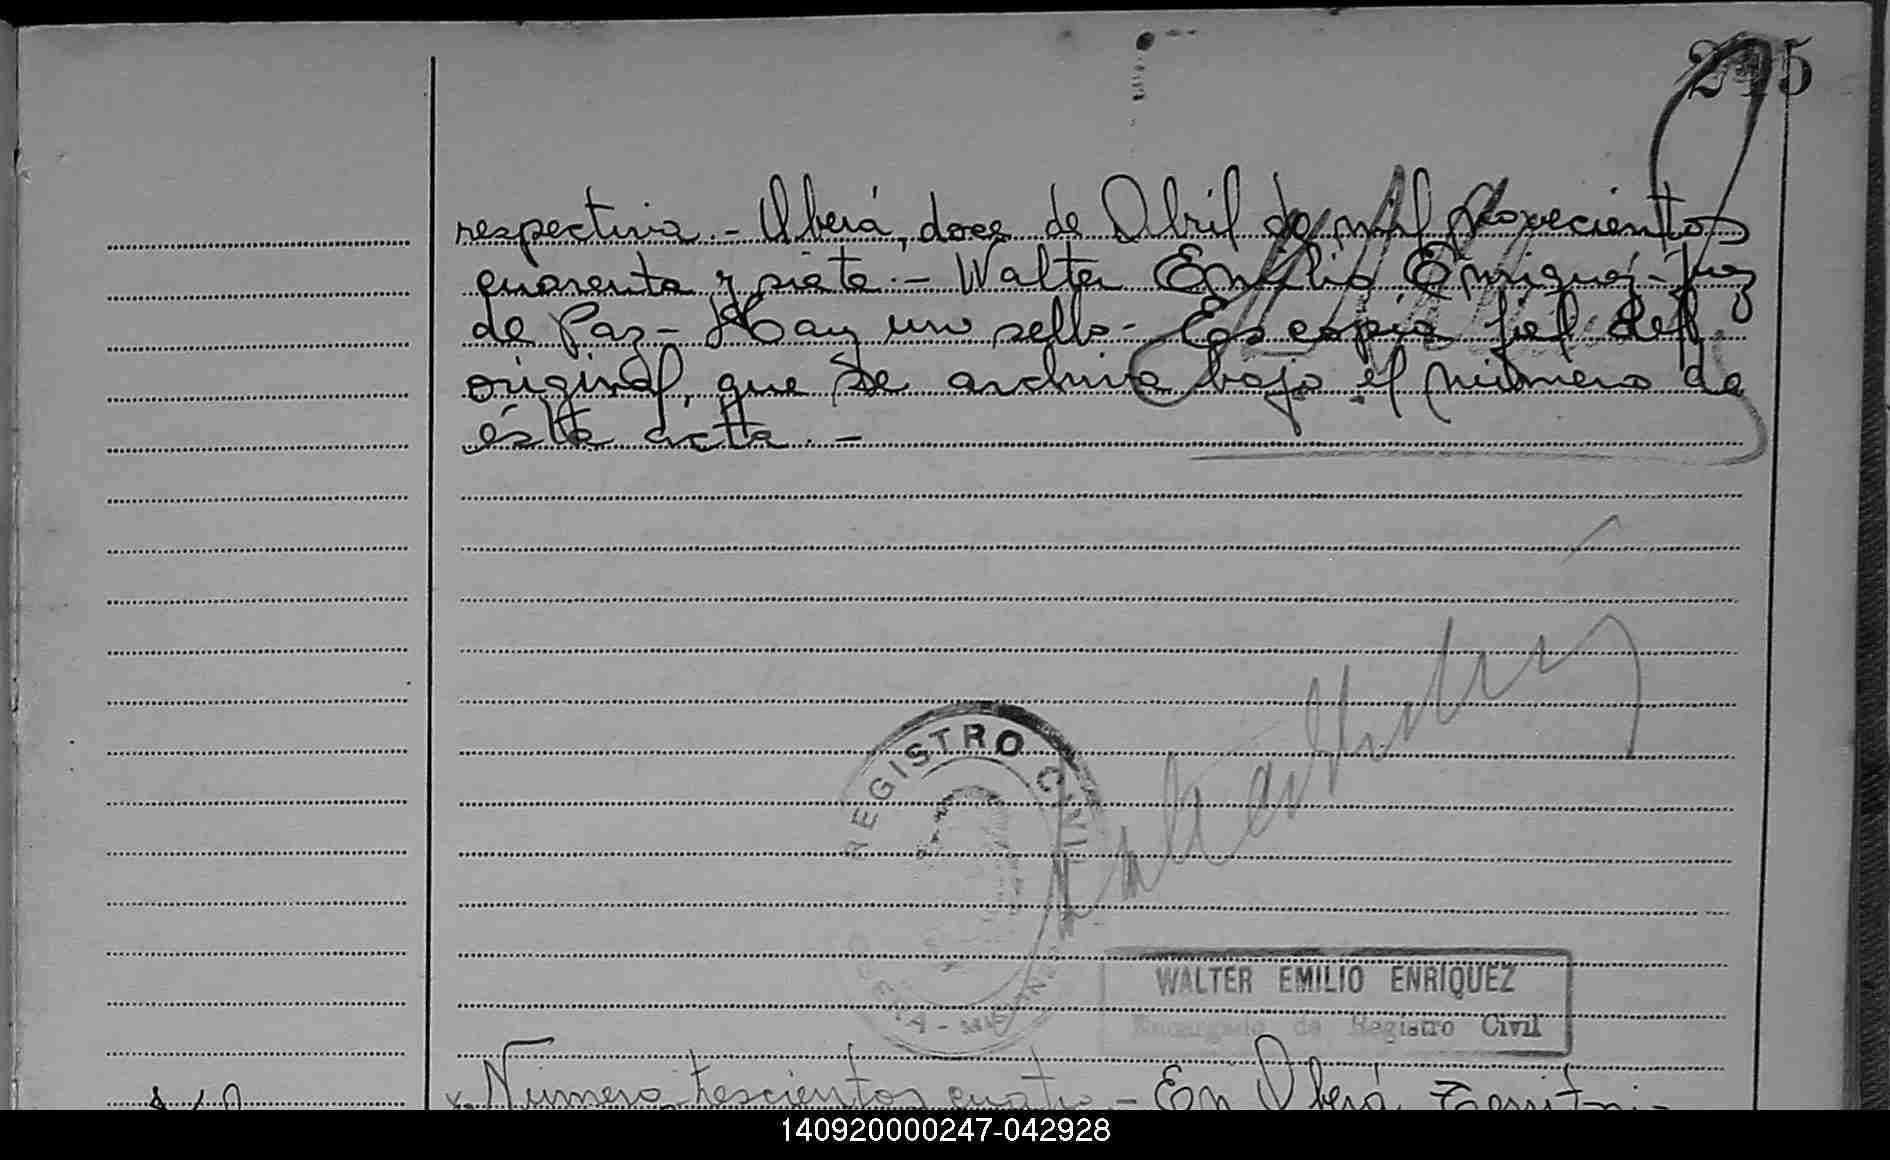 245
respectiva.- Oberá, doce de Abril de mil novecientos
cuarenta y siete.- Walter Emilio Enriquez-Juez
de Paz- Hay un sello- Es copia fiel del
original, que se archiva bajo el número de
ésta acta.-
REGISTRO CIVIL
OBERA - MISIONES
WALTER EMILIO ENRIQUEZ
Encargado de Registro Civil
Número trescientos cuatro.- En Oberá, Territori-
140920000247-042928